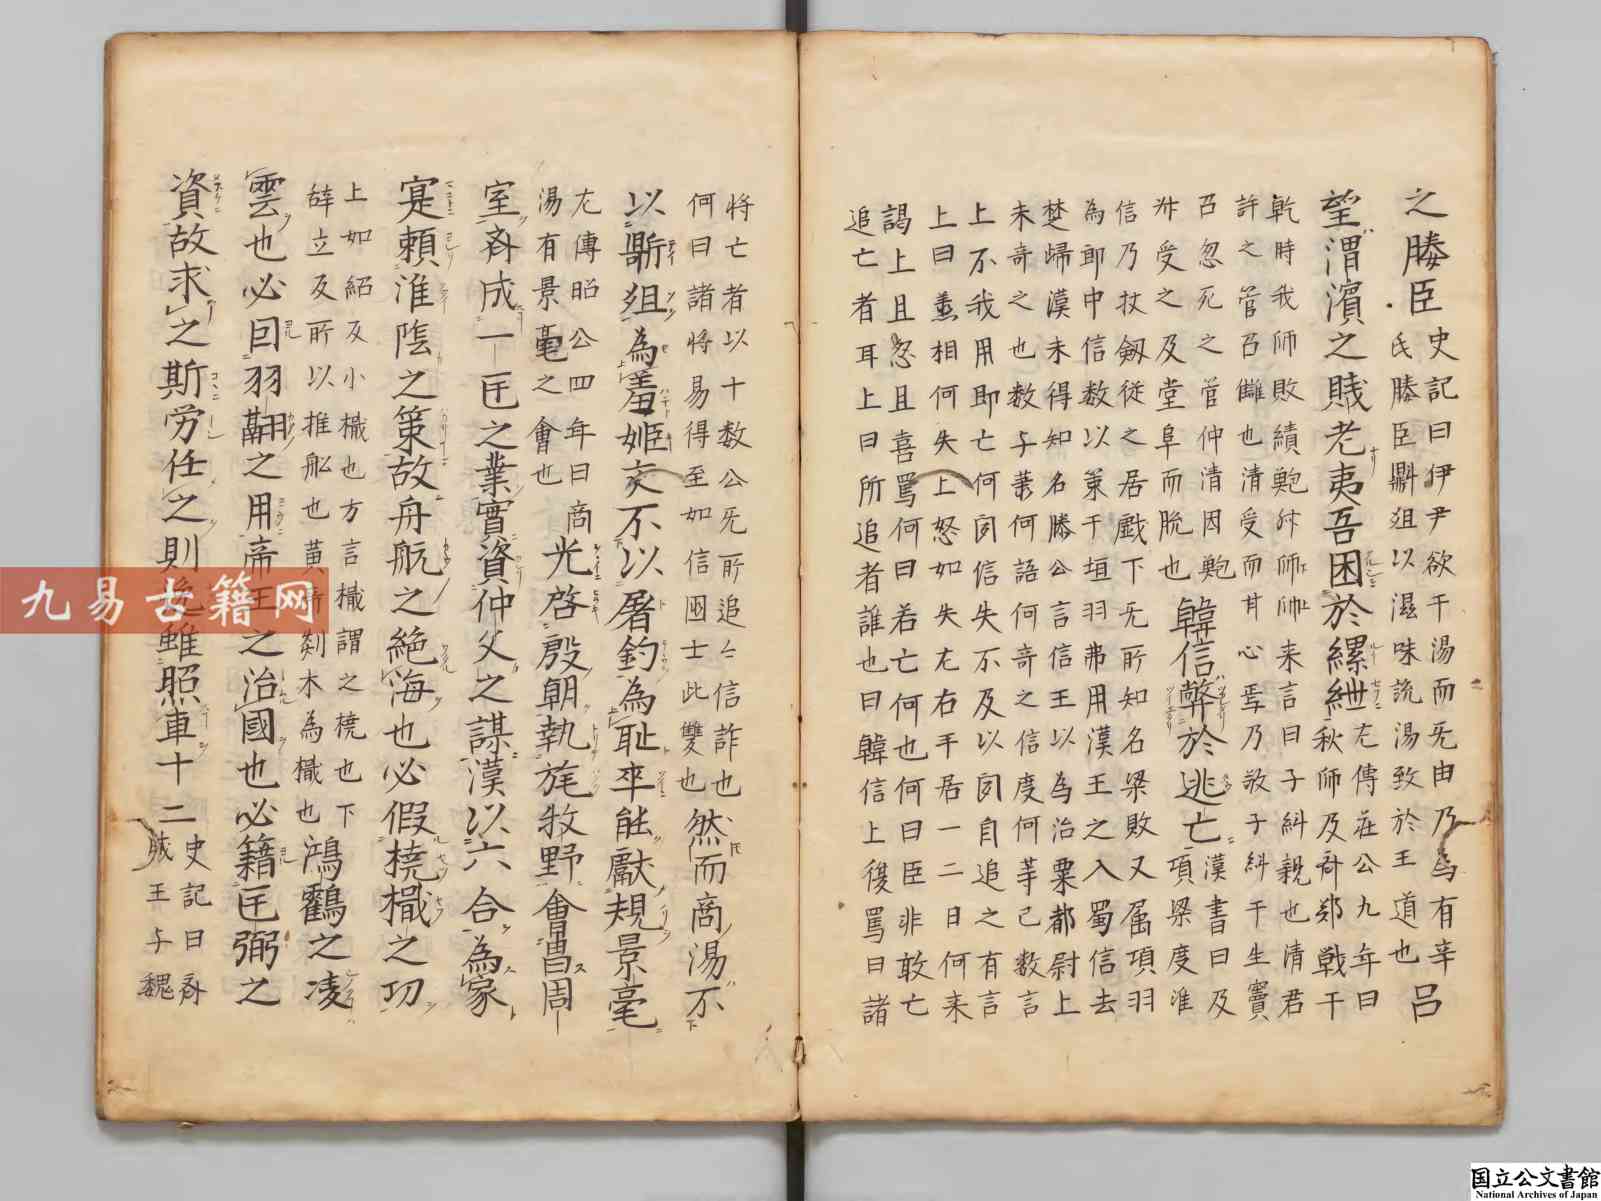 之媵臣史記曰伊尹欲干湯而无由乃為有莘
氏媵臣鼎俎以滋味説湯致於王道也呂
望渭濱之賤老夷吾困於縲紲左傳莊公九年曰
秋師及斉戰于
乾時我師敗績鮑叔師師来言曰子糾親也清君
許之管召讎也清受而甘心焉乃敬子糾于生竇
召忽死之管仲清因鮑
叔受之及堂阜而脱也韓信弊於逃亡漢書曰及
項梁度淮
信乃杖劔従之居戲下无所知名梁敗又属項羽
為郎中信数以策干垣羽弗用漢王之入蜀信去
楚歸漢未得知名勝公言信王以為治粟都尉上
未奇之也数与萧何語何奇之信度何等已数言
上不我用即亡何囙信失不及以囙自追之有言
上曰蕭相何失上怒如失左右乎居一二日何来
謁上且忽且喜罵何曰若亡何也何曰臣非敢亡
追亡者耳上曰所追者誰也曰韓信上復罵曰諸
将亡者以十数公无所追今信詐也
何曰諸将易得至如信國士此雙也然而商湯不
以鼎俎為羞姫文不以屠釣為耻卒能獻規景毫
左傳昭公四年曰商
湯有景毫之會也光啓殷朝執旄牧野會昌周
室斉成一匡之業實資仲父之謀漢以六合為家
寔頼淮陰之策故舟航之絶海也必假橈檝之功
上如紹反小檝也方言檝謂之橈也下
辥立反所以推舩也黄帝剡木為檝也鴻鸖之凌
雲也必囙羽翮之用帝王之治國也必籍匡弼之
資故求之斯労任之則逸雖照車十二史記曰斉
威王与魏
九易古籍网
国立公文書館
National Archives of Japan